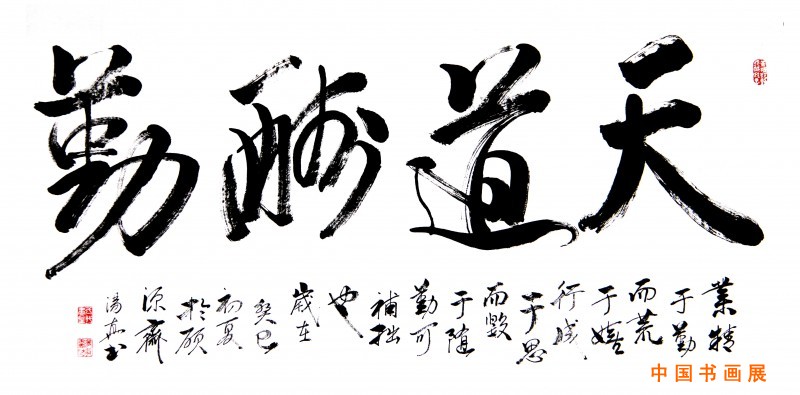 天道酬勤
業精
于勤
而荒
于嬉
行成
于思
而毀
于随
勤可
補拙
也
歲在
癸巳
初夏
於硕
源齋
湯真书
中国书画展